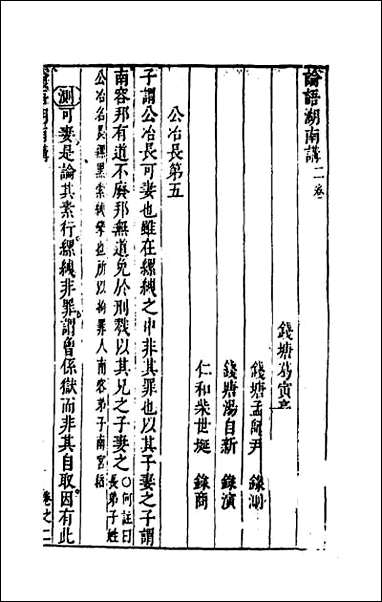 論語湖南講二卷
錢塘葛寅亮
錢塘孟師尹 錄測
錢塘湯自新 錄演
仁和柴世埏 錄商
公冶長第五
子謂公冶長可妻也雖在縲絏之中非其罪也以其子妻之子謂
南容邦有道不廢邦無道免於刑戮以其兄之子妻之○何註曰
長弟子姓
公冶名長縲黑索絏攣也所以拘罪人南容弟子南宮縚
測可妻是論其素行縲絏非罪謂曾係獄而非其自取因有此
卷之二